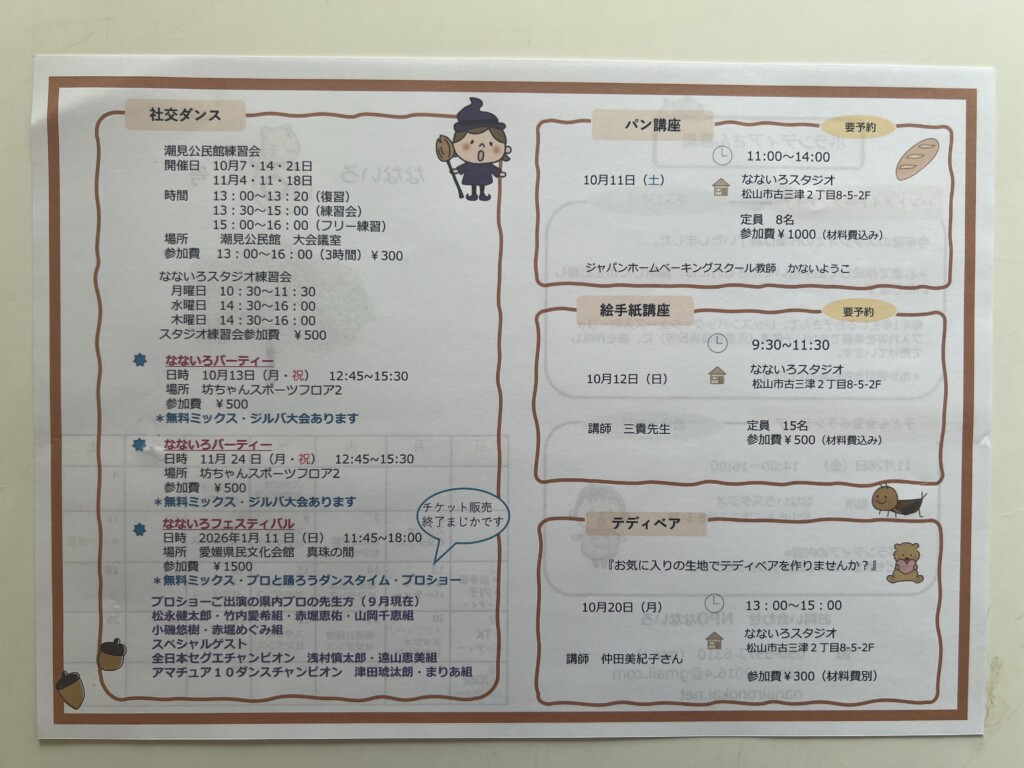 社交ダンス
潮見公民館練習会
開催日　10月7・14・21日
11月4・11・18日
時間　13：00～13：20（復習）
13：30～15：00（練習会）
15：00～16：00（フリー練習）
場所　潮見公民館　大会議室
参加費　13：00～16：00（3時間）￥300
なないろスタジオ練習会
月曜日　10：30～11：30
水曜日　14：30～16：00
木曜日　14：30～16：00
スタジオ練習会参加費　￥500
なないろパーティー
日時　10月13日（月・祝）　12:45~15:30
場所　坊ちゃんスポーツフロア2
参加費　￥500
＊無料ミックス・ジルバ大会あります
なないろパーティー
日時　11月 24 日（月・祝）　12:45~15:30
場所　坊ちゃんスポーツフロア2
参加費　￥500
＊無料ミックス・ジルバ大会あります
チケット販売
終了まじかです
なないろフェスティバル
日時　2026年1月 11 日（日）　11:45~18:00
場所　愛媛県民文化会館　真珠の間
参加費　￥1500
＊無料ミックス・プロと踊ろうダンスタイム・プロショー
プロショーご出演の県内プロの先生方（９月現在）
松永健太郎・竹内愛希組・赤堀恵佑・山岡千恵組
小磯悠樹・赤堀めぐみ組
スペシャルゲスト
全日本セグエチャンピオン　浅村慎太郎・遠山恵美組
アマチュア１０ダンスチャンピオン　津田琥太朗・まりあ組
パン講座
要予約
11:00～14:00
10月11日（土）
なないろスタジオ
松山市古三津２丁目8-5-2F
定員　8名
参加費￥1000（材料費込み）
ジャパンホームベーキングスクール教師　かないようこ
絵手紙講座
要予約
9:30~11:30
10月12日（日）
なないろスタジオ
松山市古三津２丁目8-5-2F
講師　三貴先生
定員　15名
参加費￥500（材料費込み）
テディベア
『お気に入りの生地でテディベアを作りませんか？』
10月20日（月）
13：00～15：00
なないろスタジオ
松山市古三津２丁目8-5-2F
講師　仲田美紀子さん
参加費￥300（材料費別）